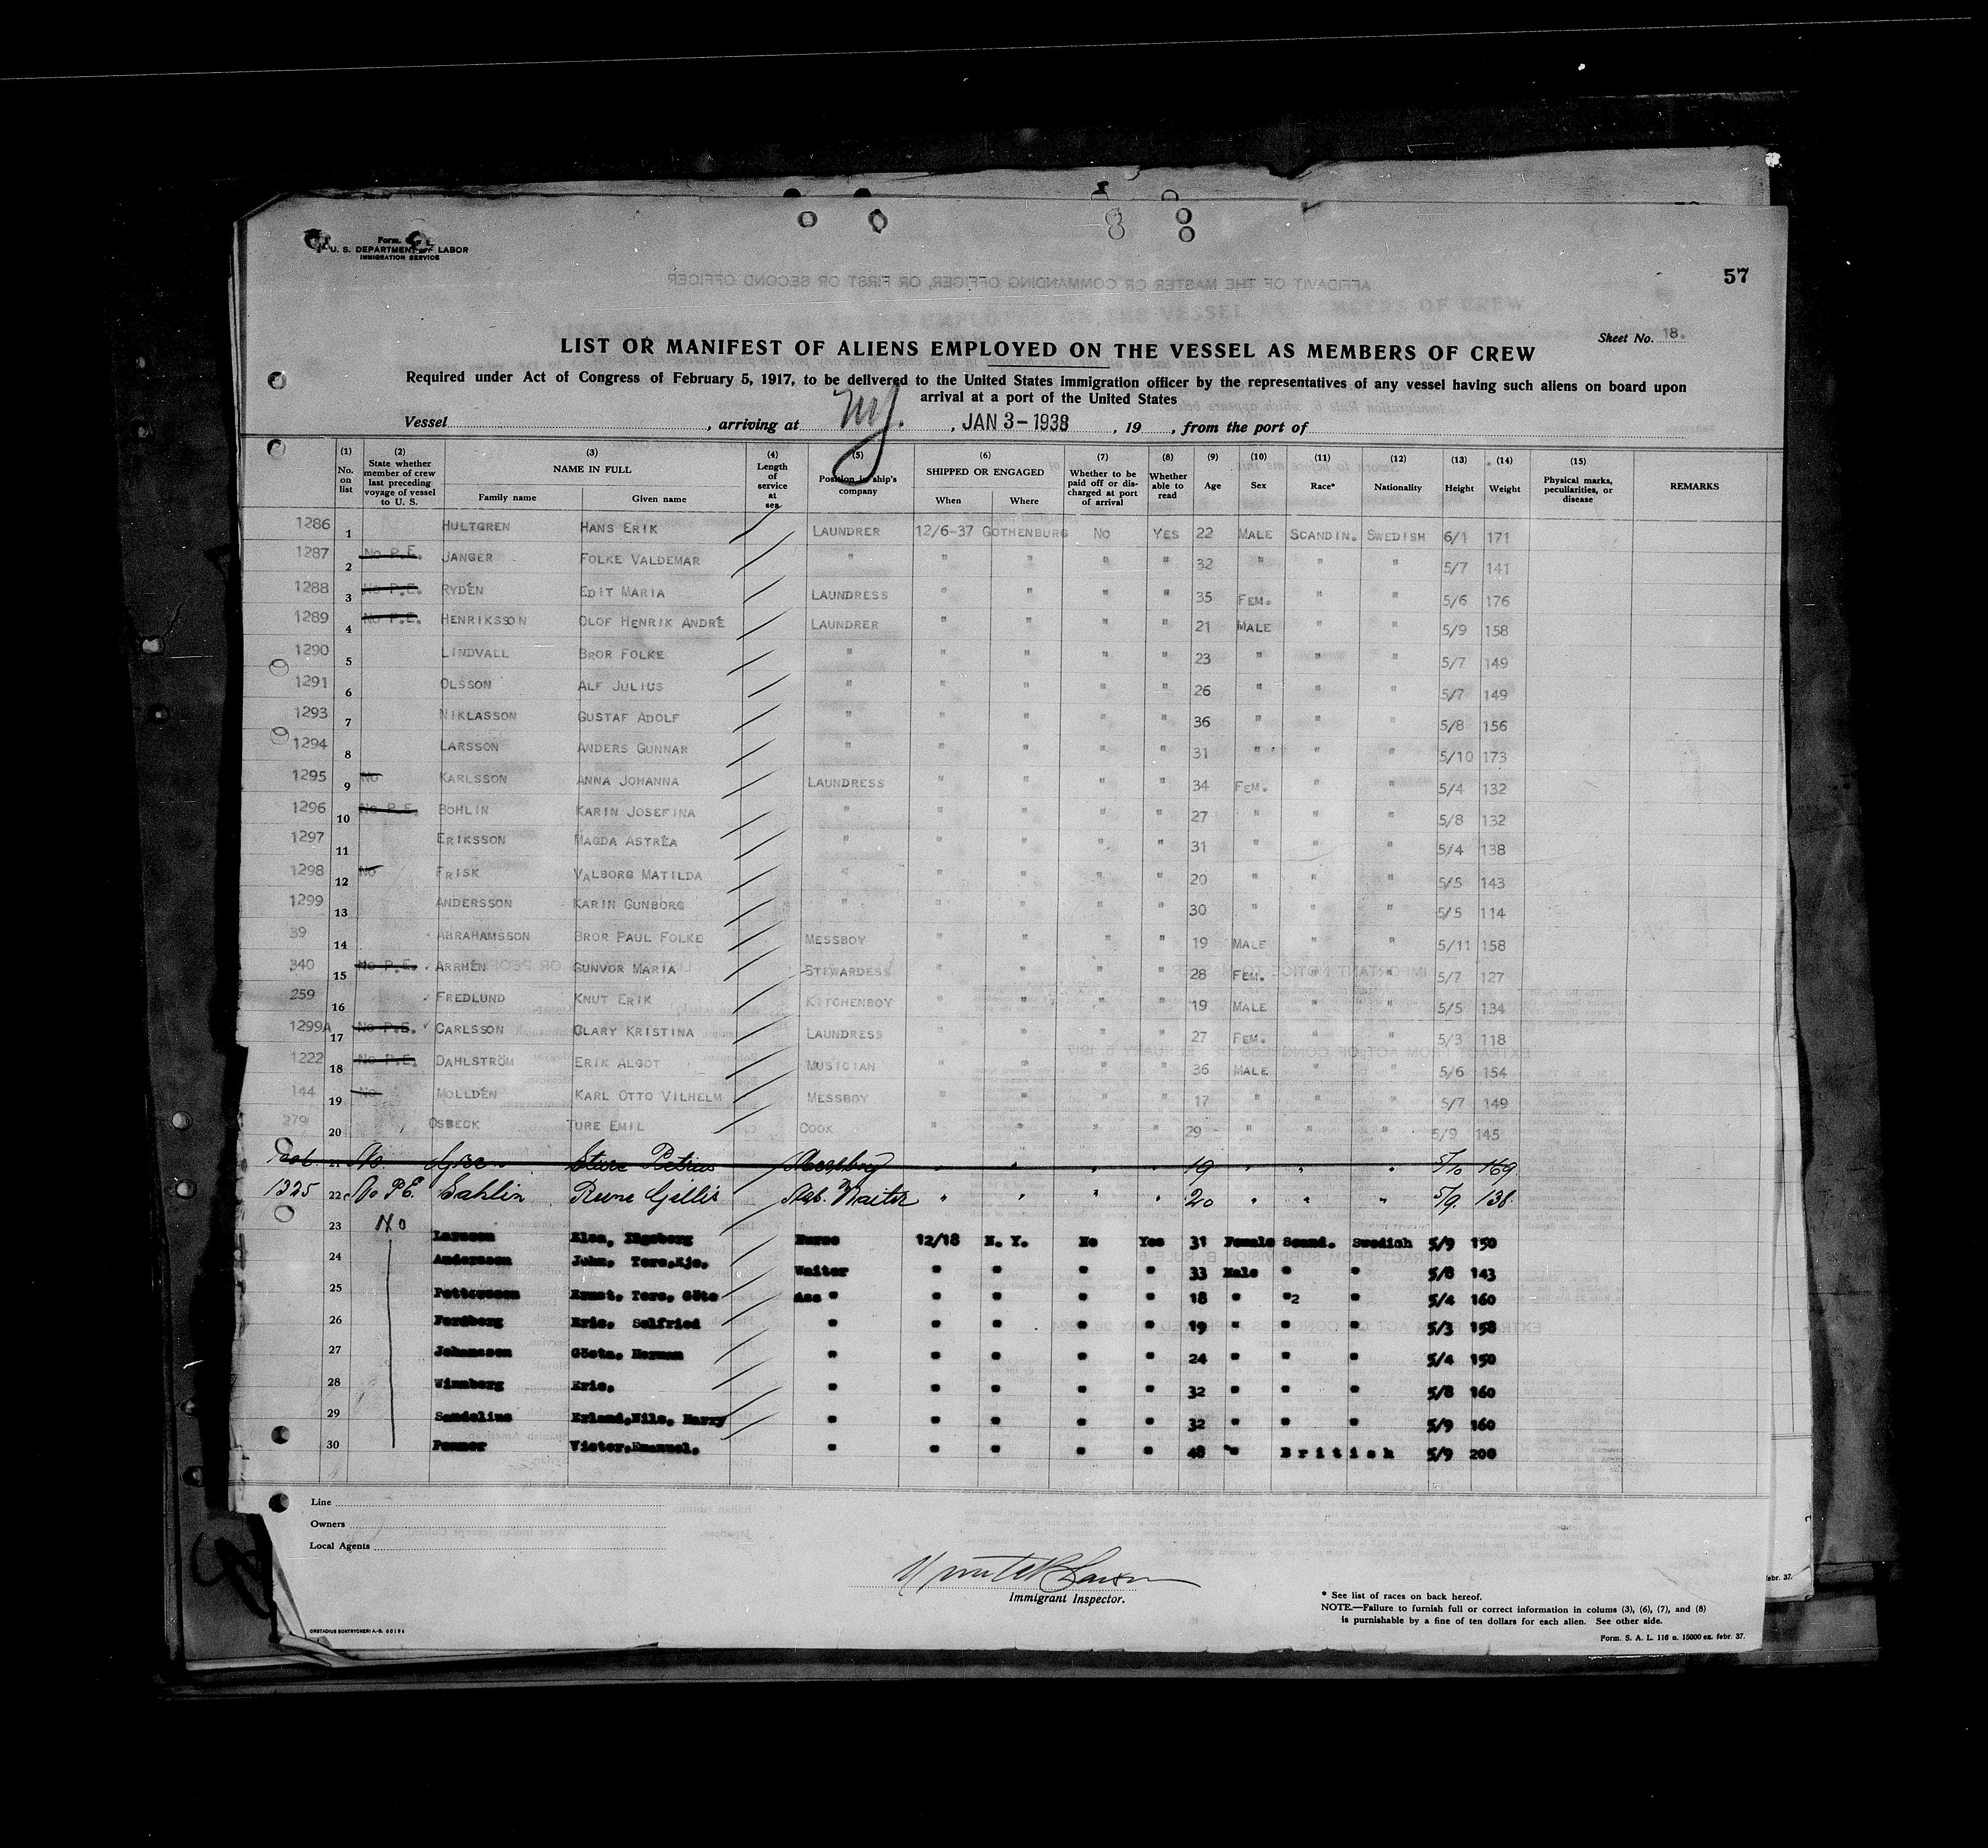 Form.
U. S. DEPARTMENT OF LABOR
IMMIGRATION SERVICE
57
Sheet No. 18.
LIST OR MANIFEST OF ALIENS EMPLOYED ON THE VESSEL AS MEMBERS OF CREW
Required under Act of Congress of February 5, 1917, to be delivered to the United States immigration officer by the representatives of any vessel having such aliens on board upon
arrival at a port of the United States
Vessel , arriving at NY. , JAN 3-1938 , 19 , from the port of
(1) No. on list (2) State whether member of crew last preceding voyage of vessel to U. S. (3) NAME IN FULL Family name Given name (4) Length of service at sea (5) Position in ship's company (6) SHIPPED OR ENGAGED When Where (7) Whether to be paid off or discharged at port of arrival (8) Whether able to read (9) Age (10) Sex (11) Race* (12) Nationality (13) Height (14) Weight (15) Physical marks, peculiarities, or disease REMARKS
1286 1 HULTGREN HANS ERIK LAUNDRER 12/6-37 GOTHENBURG NO YES 22 MALE SCANDIN. SWEDISH 6/1 171
1287 2 NO P.E. JANGER FOLKE VALDEMAR " " " " " 32 " " " 5/7 141
1288 3 NO P.E. RYDÉN EDIT MARIA LAUNDRESS " " " " 35 FEM. " " 5/6 176
1289 4 NO P.E. HENRIKSSON OLOF HENRIK ANDRÉ LAUNDRER " " " " 21 MALE " " 5/9 158
1290 5 LINDVALL BROR FOLKE " " " " " 23 " " " 5/7 149
1291 6 OLSSON ALF JULIUS " " " " " 26 " " " 5/7 149
1293 7 NIKLASSON GUSTAF ADOLF " " " " " 36 " " " 5/8 156
1294 8 LARSSON ANDERS GUNNAR " " " " " 31 " " " 5/10 173
1295 9 NO KARLSSON ANNA JOHANNA LAUNDRESS " " " " 34 FEM. " " 5/4 132
1296 10 NO P.E. BOHLIN KARIN JOSEFINA " " " " " 27 " " " 5/8 132
1297 11 ERIKSSON MAGDA ASTRÉA " " " " " 31 " " " 5/4 138
1298 12 NO FRISK VALBORG MATILDA " " " " " 20 " " " 5/5 143
1299 13 ANDERSSON KARIN GUNBORG " " " " " 30 " " " 5/5 114
39 14 ABRAHAMSSON BROR PAUL FOLKE MESSBOY " " " " 19 MALE " " 5/11 158
340 15 NO P.E. ARRHÉN GUNVOR MARIA STEWARDESS " " " " 28 FEM. " " 5/7 127
259 16 FREDLUND KNUT ERIK KITCHENBOY " " " " 19 MALE " " 5/5 134
1299A 17 NO P.E. CARLSSON CLARY KRISTINA LAUNDRESS " " " " 27 FEM. " " 5/3 118
1222 18 NO P.E. DAHLSTRÖM ERIK ALGOT MUSICIAN " " " " 36 MALE " " 5/6 154
144 19 NO MOLLDÉN KARL OTTO VILHELM MESSBOY " " " " 17 " " " 5/7 149
279 20 OSBECK TURE EMIL COOK " " " " 29 " " " 5/9 145
21 No. Sture Petrius Messboy " " " " 19 " " " 5/10 169
1325 22 No P.E. Sahlin Rune Gillis Asb. Waiter " " " " 20 " " " 5/9. 138.
23 No Larsson Elsa, Ingeborg Nurse 12/18 N. Y. No Yes 31 Female Scand. Swedish 5/9 150
24 Andersson John, Tore, Waiter " " " " 33 Male " " 5/8 143
25 Pettersson Ernst, Tore, Göte Ass " " " " " 18 " " " 5/4 160
26 Fordberg Eric, Selfried " " " " " 19 " " " 5/3 158
27 Johansson Gösta, Herman " " " " " 24 " " " 5/4 150
28 Winnberg Eric. " " " " " 32 " " " 5/8 160
29 Sandelius Erland, Nils, Harry " " " " " 32 " " " 5/9 160
30 Victor, Emanuel. " " " " " 48 " British 5/9 200
Line
Owners
Local Agents
Immigrant Inspector.
* See list of races on back hereof.
NOTE.—Failure to furnish full or correct information in colums (3), (6), (7), and (8)
is purnishable by a fine of ten dollars for each alien. See other side.
Form. S. A. L. 116 n. 15000 ex. febr. 37.
ORSTADIUS BOKTRYCKERI A.-B. 60194
febr. 37.